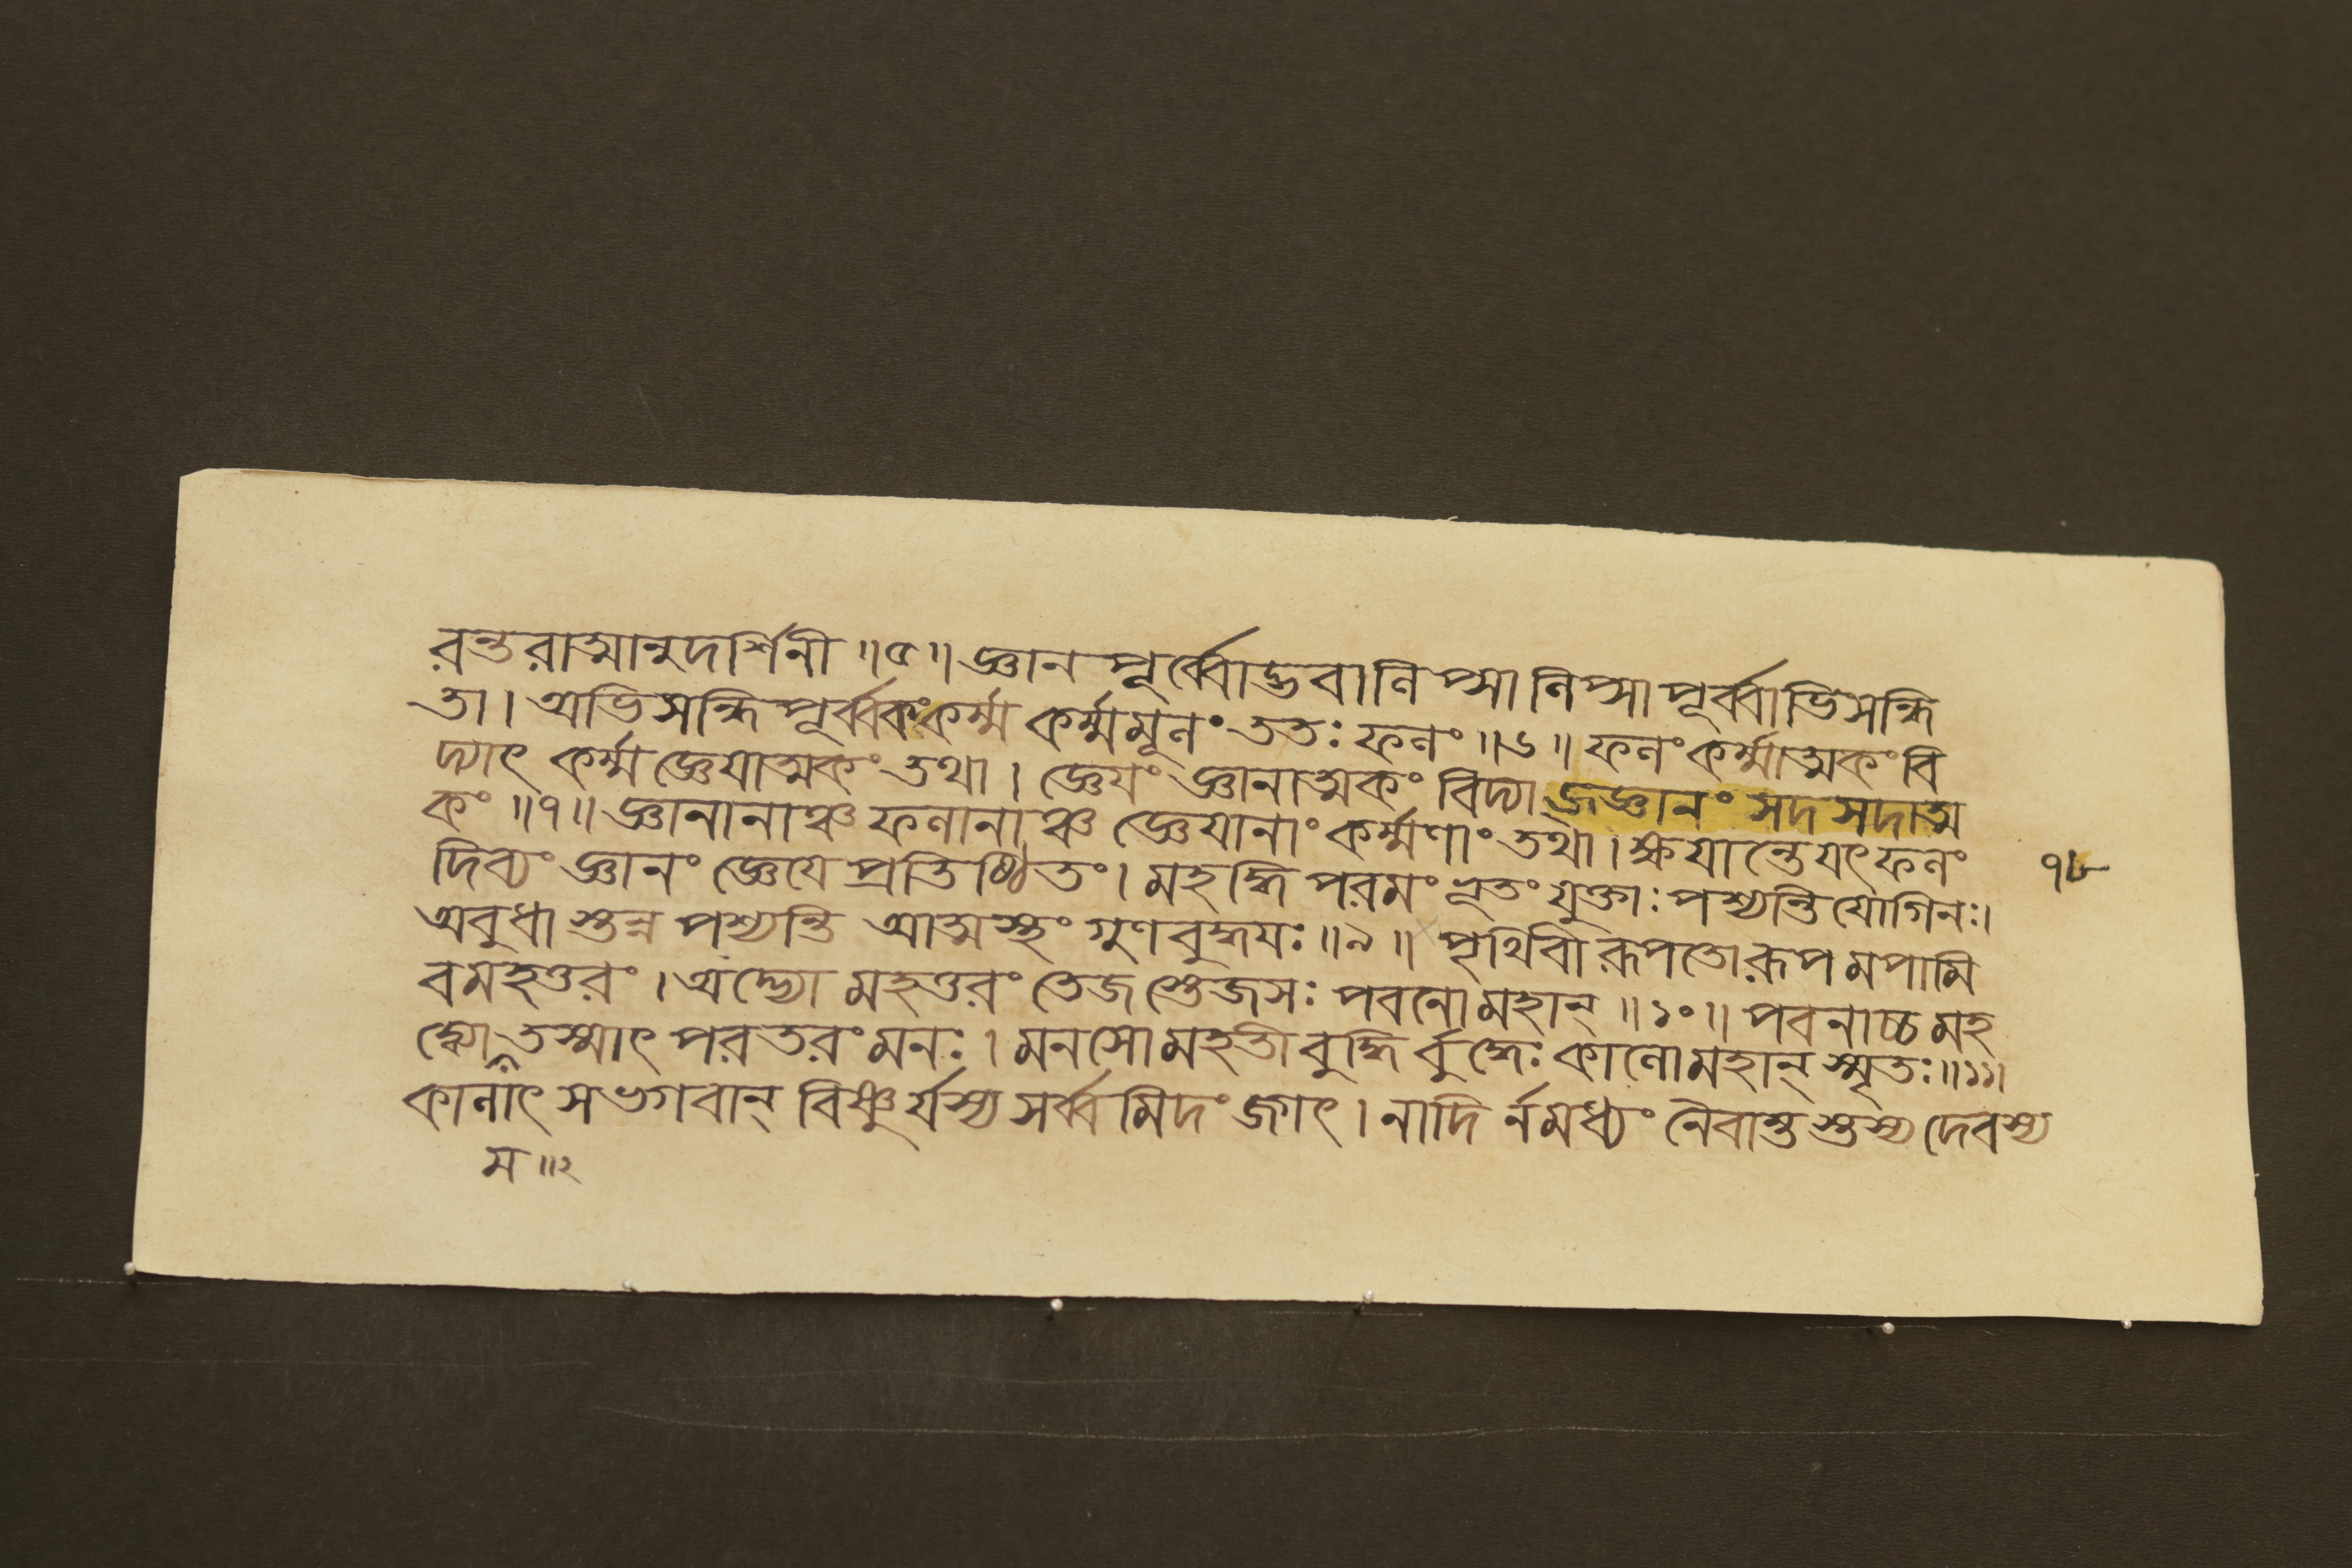 রন্তরাত্মানুদর্শিনী ॥৫॥ জ্ঞান পূর্ব্বোদ্ভবা লিপ্সা লিপ্সা পূর্ব্বাভিসন্ধি
তা । অভিসন্ধি পূর্ব্বকং কর্ম্ম কর্ম্মমূলং ততঃ ফলং ॥৬॥ ফলং কর্ম্মাত্মকং বি
দ্যাৎ কর্ম্ম জ্ঞেয়াত্মকং তথা । জ্ঞেয়ং জ্ঞানাত্মকং বিদ্যাজ্জ্ঞানং সদসদাত্ম
কং ॥৭॥ জ্ঞানানাঞ্চ ফলানাঞ্চ জ্ঞেয়ানাং কর্ম্মণাং তথা । ক্ষয়ান্তে যৎ ফলং
৭৮
দিব্যং জ্ঞানং জ্ঞেয়ে প্রতিষ্ঠিতং । মহদ্ধি পরমং ভূতং যুক্তাঃ পশ্যন্তি যোগিনঃ।
অবুধাস্তন্ন পশ্যন্তি আত্মস্থং গুণবুদ্ধয়ঃ ॥৯॥ পৃথিবী রূপতো রূপমপামি
বমহত্তরং । অদ্ভ্যো মহত্তরং তেজস্তেজসঃ পবনো মহান্ ॥১০॥ পবনাচ্চ মহ
দ্ব্যোম তস্মাৎ পরতরং মনঃ । মনসো মহতী বুদ্ধির্বুদ্ধেঃ কালো মহান্ স্মৃতঃ॥১১॥
কালাৎ স ভগবান্ বিষ্ণুর্যস্য সর্ব্বমিদং জগৎ । নাদির্নমধ্যং নৈবান্তস্তস্য দেবস্য
ম ॥২